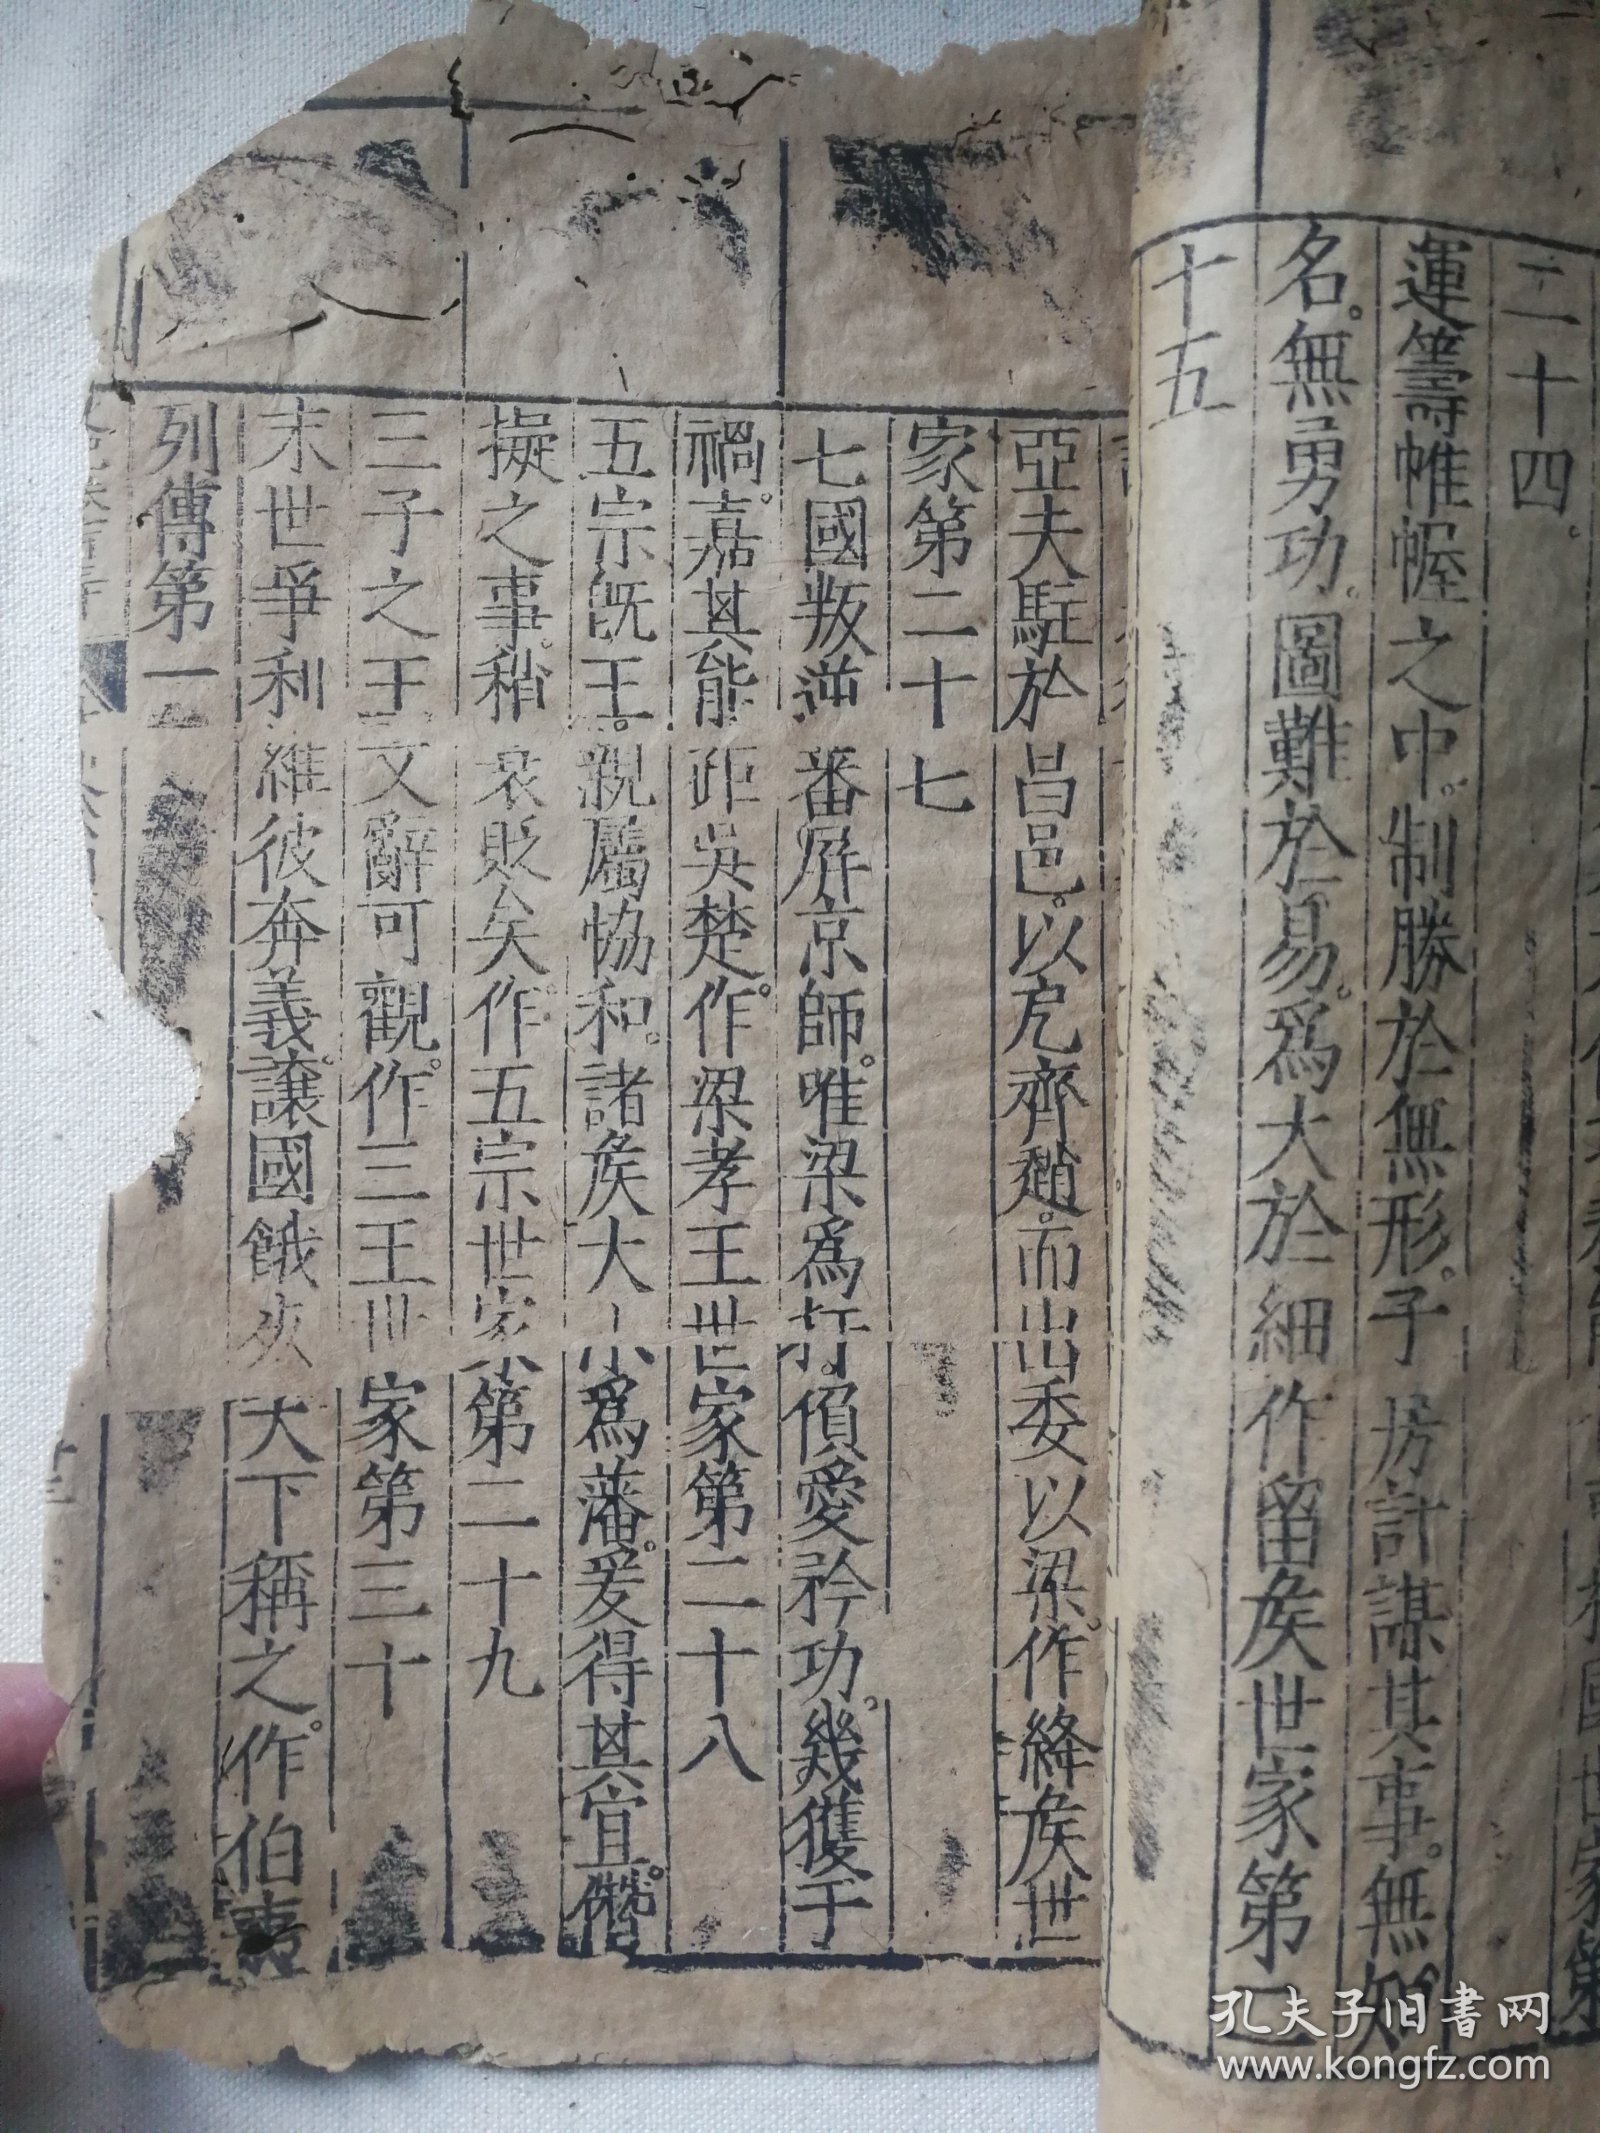 二十四。
運籌帷幄之中。制勝於無形。子房計謀其事。無知
名。無勇功。圖難於易。爲大於細作留侯世家第二
十五
亞夫駐於昌邑。以戹齊趙。而出委以梁。作絳侯世
家第二十七
七國叛逆番屏京師。唯梁爲扞。偩愛矜功。幾獲于
禍。嘉其能距吳楚作。梁孝王世家第二十八
五宗旣王。親屬恊和。諸侯大小爲藩。爰得其宜。僭
擬之事。稍衰貶矣。作五宗世家第二十九
三子之王文辭可觀。作三王世家第三十
末世爭利維彼奔義。讓國餓
天下稱之。作伯夷
列傳第一
孔夫子旧书网
www.kongfz.com